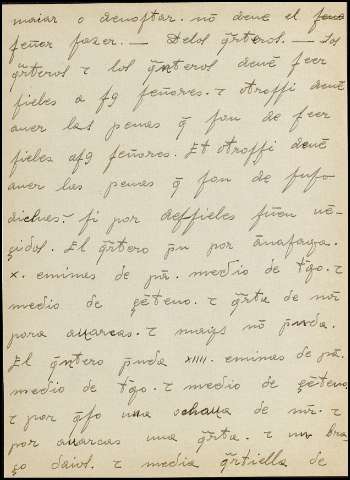 maiar o denostar. nõ deue el seno
señor fazer. — Delos q̃rteros. — Los
q̃rteros ⁊ los q̃nteros deuẽ seer
fieles a sg señores. ⁊ otrossi deuẽ
auer las penas q̃ son de seer
fieles asg señores. Et otrossi deuẽ
auer las penas q̃ son de suso
dichas. si por desfieles fuẽn uẽ-
çidos. El q̃rtero p̃n por ãnafaga.
x. eminas de pã. medio de t̃go. ⁊
medio de çẽteno. ⁊ q̃rta de nr̃
pora auarcas. ⁊ maigs nõ p̃nda.
El q̃ntero p̃nda xiiii. eminas de pã.
medio de t̃go. ⁊ medio de çẽteno,
⁊ por q̃so una ochaua de mr̃. ⁊
por auarcas una q̃rta. ⁊ un bra-
ço daios. ⁊ media q̃rtiella de